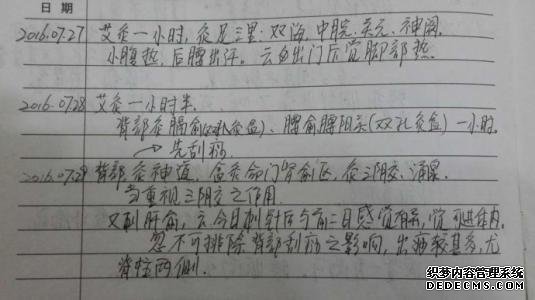 日期
2016.07.27 艾灸一小时,灸足三里、双海、中脘、关元、神阙
小腹热,后腰出汗。云自出门后觉脚部热
2016.07.28 艾灸一小时半
背部灸膈俞(双孔灸盒)、脾俞脾阳关(双孔灸盒)一小时
→先刮痧
2016.07.29 背部灸神道、灸命门肾俞区、灸三阴交、涌泉
当重视三阴交之作用
又刺肝俞,云今日刺针后与前二日感觉有异,觉可进体内
忽不可排除背部刮痧之影响,出痧较甚多,尤
脊柱两侧.
织梦内容管理系统
DEDECMS.COM